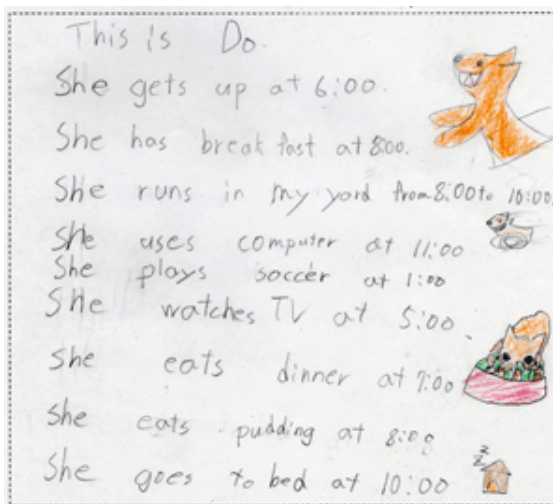 This is Do.
She gets up at 6:00.
She has break fast at 8:00.
She runs in my yard from 8:00 to 10:00.
She uses computer at 11:00
She plays soccer at 1:00
She watches TV at 5:00
She eats dinner at 7:00
She eats pudding at 8:00
She goes to bed at 10:00
zzz